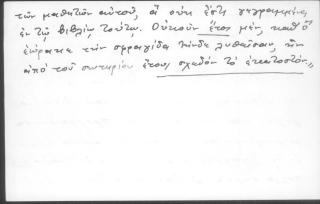 τῶν μαθητῶν αὐτοῦ, ἃ οὐκ ἔστι γεγραμμένα
ἐν τῷ βιβλίῳ τούτῳ. Οὐκοῦν ἔτος μέν, καθ' ὃ
ἑώρακα τὴν σφραγῖδα τήνδε λυθεῖσαν, ἦν
ἀπὸ τοῦ σωτηρίου ἔτους σχεδὸν τὸ ἑκατοστόν,,